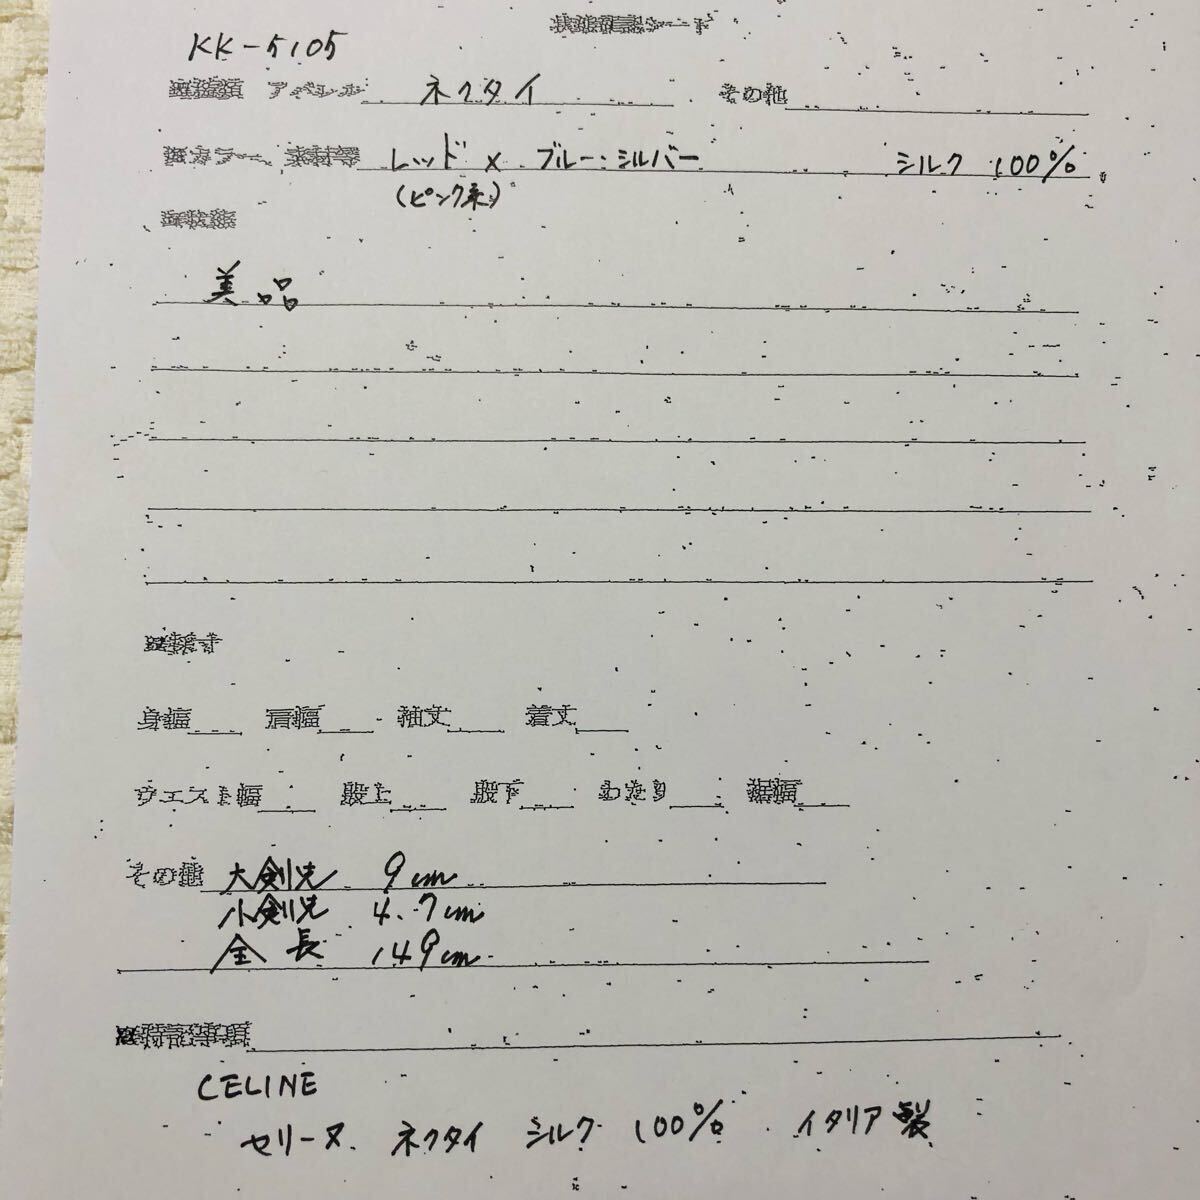 KK-5105
アパレル ネクタイ その他
カラー、素材等 レッド × ブルー:シルバー シルク 100%
(ピンク系)
美品
身幅 肩幅 袖丈 着丈
ウエスト幅 股上 股下 わたり 裾幅
その他 大剣先 9cm
小剣先 4.7cm
全長 149cm
特記事項
CELINE
セリーヌ ネクタイ シルク 100% イタリア製